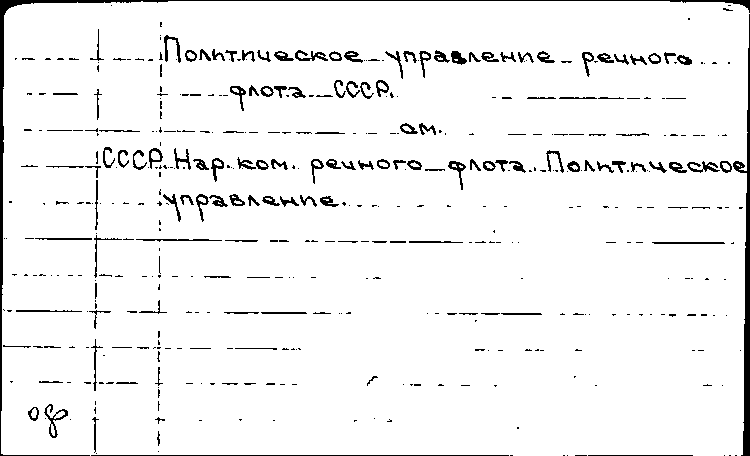 Политическое управление речного
флота СССР.
см.
СССР. Нар. ком. речного флота. Политическое
управление.